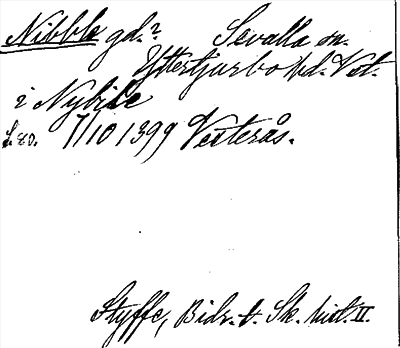 Nibble gd.? Sevalla sn.
Yttertjurbo hd. Vstm.
i Nybile
f.so. 7/10 1399 Vesterås.
Styffe, Bidr. t. Sk. hist. II.